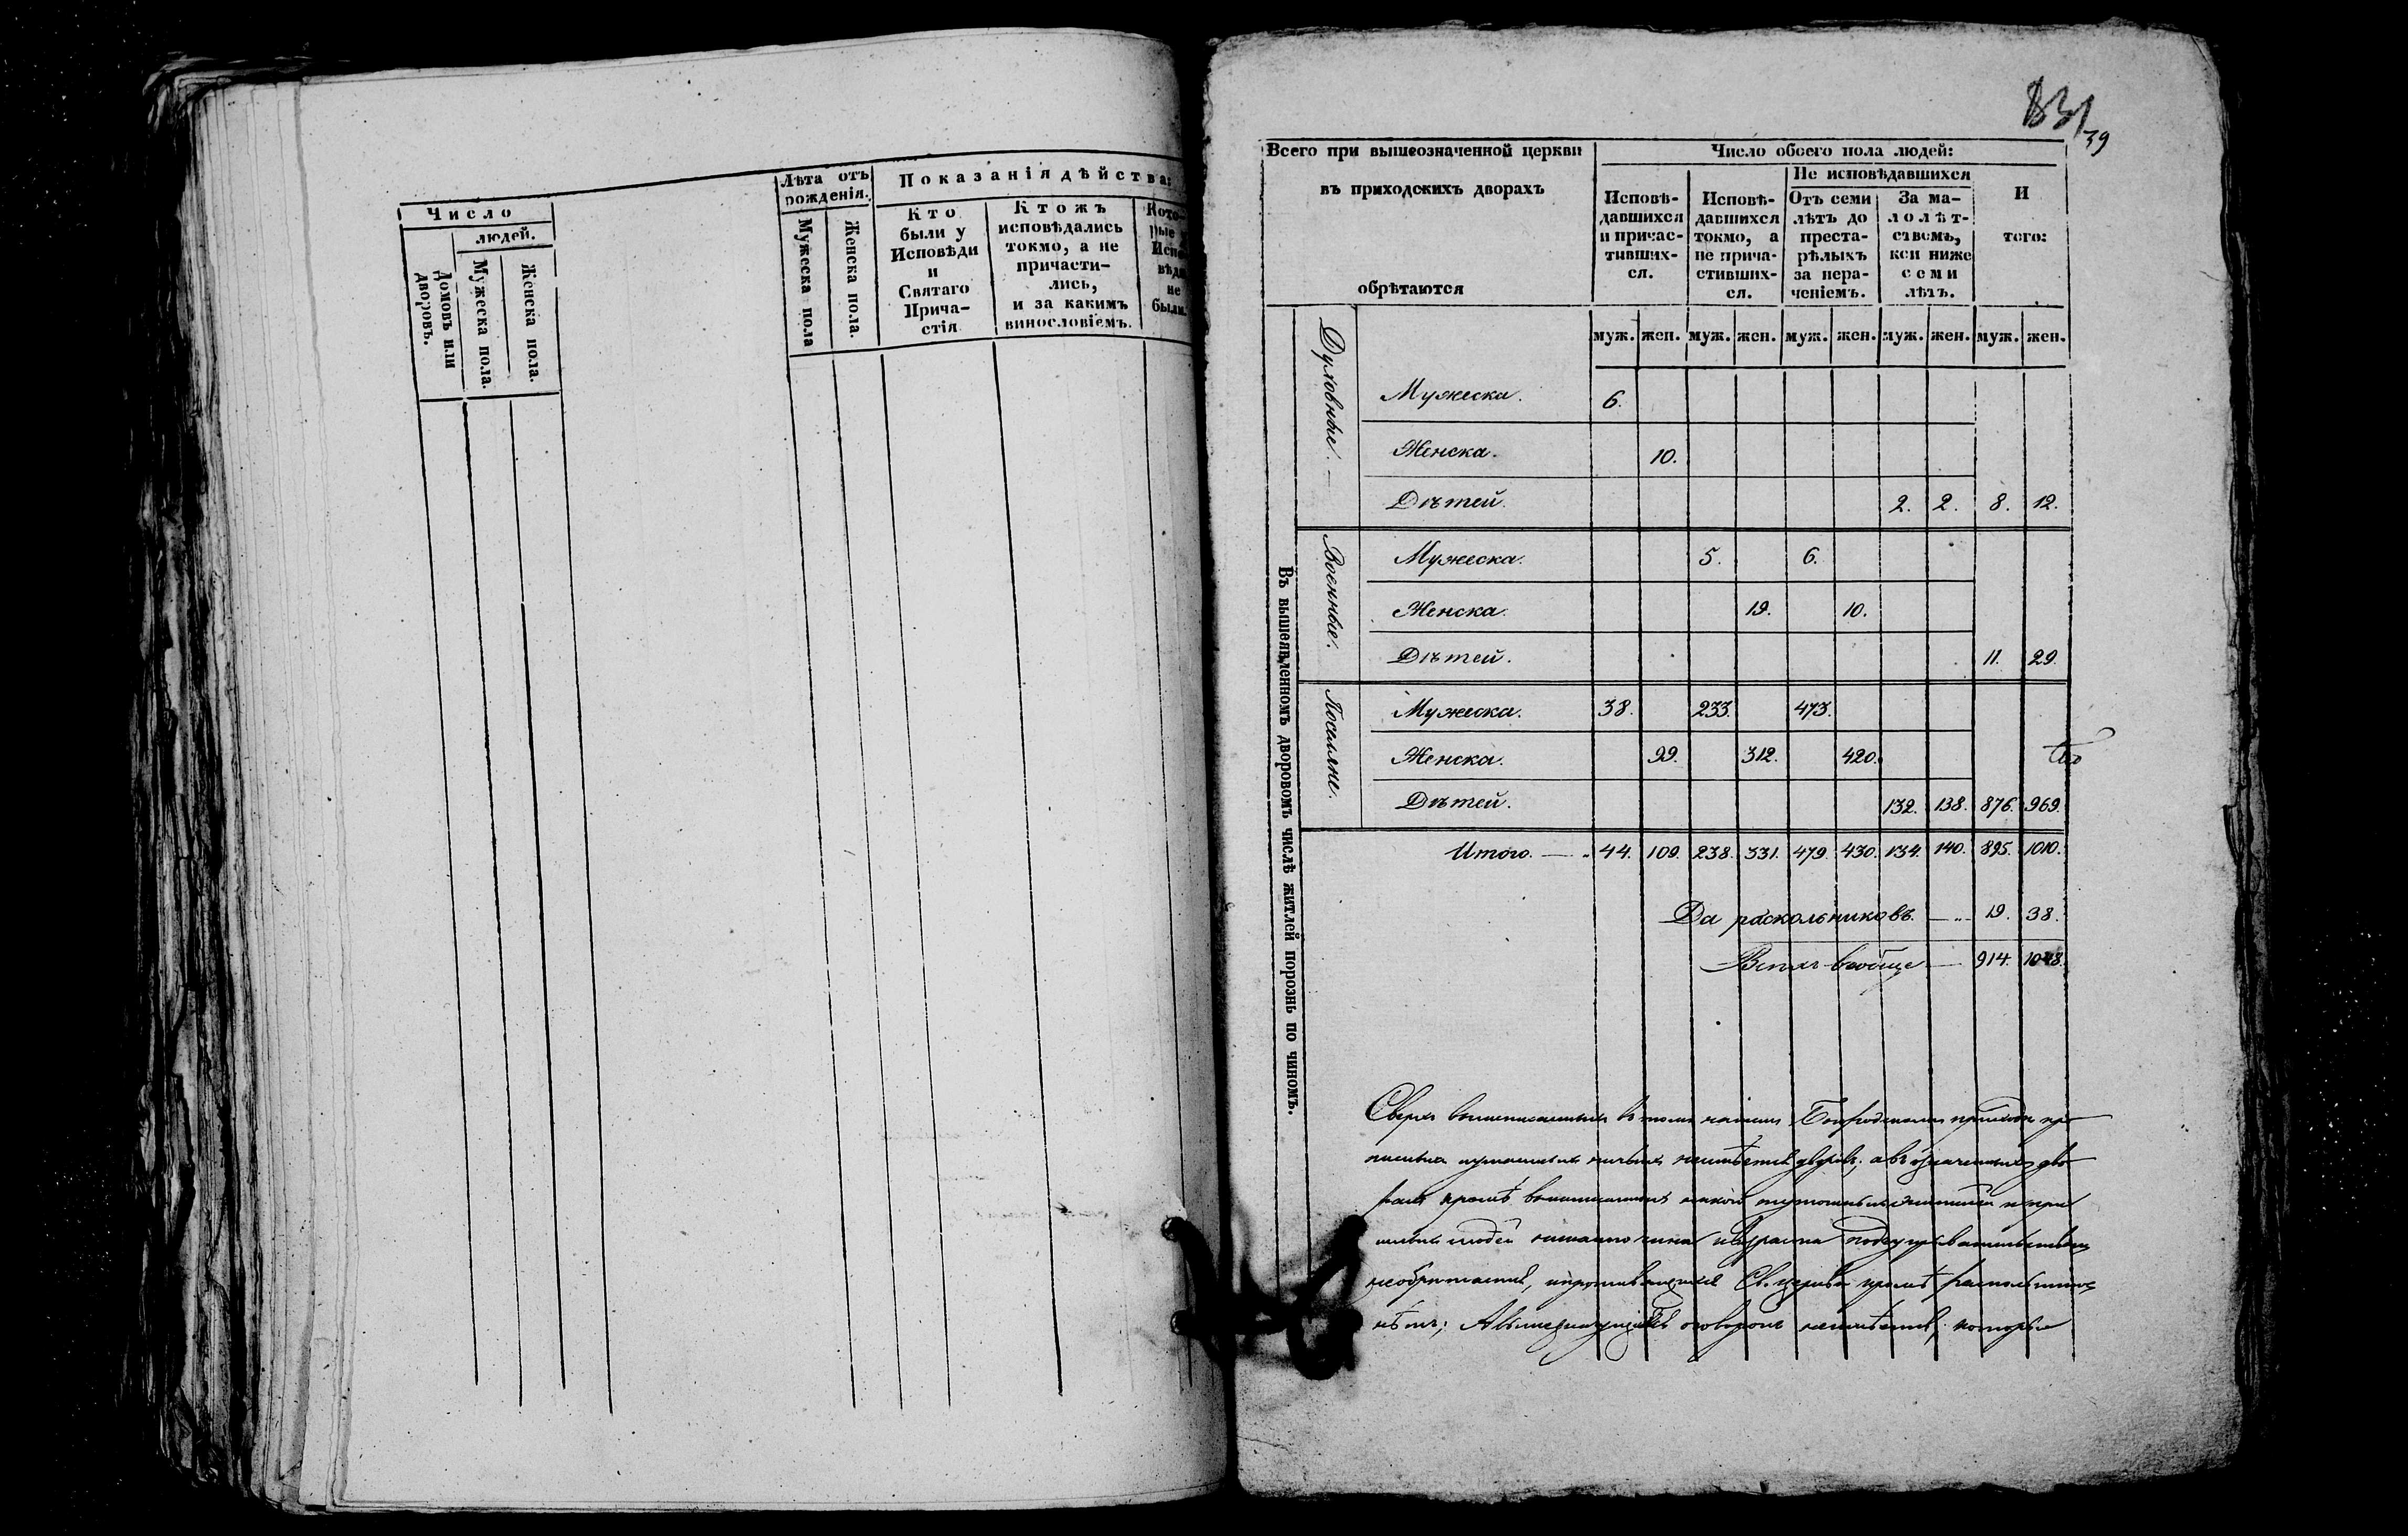 Число
людей.
Домовъ или дворовъ.
Мужеска пола.
Женска пола.
Лѣта отъ
рожденія.
Мужеска пола
Женска пола.
Показанія дѣйства:
Кто
были у
Исповѣди
и
Святаго
Прича-
стія
Ктожъ
исповѣдались
токмо, а не
причасти-
лись,
и за какимъ
винословіемъ.
Кото-
рые у
Испо
вѣди
не
были.
831
39
Всего при вышеозначенной церкви
въ приходскихъ дворахъ
обрѣтаются
Число обоего пола людей:
Исповѣ-
давшихся
и причас-
тивших-
ся.
Исповѣ-
давшихся
токмо, а
не прича-
стивших-
ся.
Не исповѣдавшихся
Отъ семи
лѣтъ до
преста-
рѣлыхъ
за нера-
ченіемъ.
За ма-
лолѣт-
ствомъ,
кои ниже
семи
лѣтъ.
И
того:
муж. жен. муж. жен. муж. жен. муж. жен. муж. жен.
Въ вышеявленномъ дворовомъ числѣ житлей порознь по чиномъ.
Духовные.
Мужеска. 6.
Женска. 10.
Дѣтей. 2. 2. 8. 12.
Военные.
Мужеска. 5. 6.
Женска. 19. 10.
Дѣтей. 11. 29.
Поселяне.
Мужеска. 38. 233. 473.
Женска. 99. 312. 420.
Дѣтей. 132. 138. 876. 969.
Итого. — 44. 109. 238. 331. 479. 430. 134. 140. 895. 1010.
Да раскольниковъ. — 19. 38.
Всѣхъ вообще — 914. 1048.
Сверхъ вышеписанныхъ въ томъ приходѣ
дворовъ, а въ означенныхъ дво
рахъ кромѣ и при
людей чина
необрѣтается, Св. церкви кромѣ раскольниковъ
нѣтъ; которые